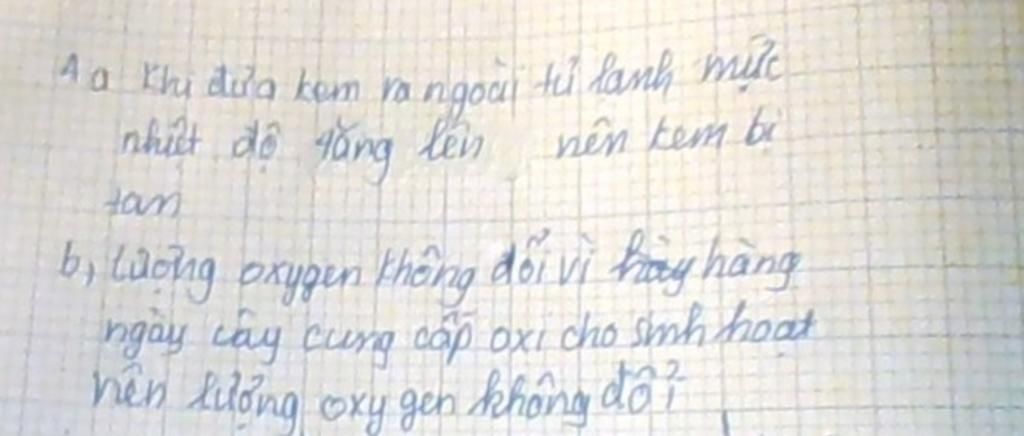 4 a Khi đưa kem ra ngoài tủ lanh mức
nhiệt độ tăng lên nên kem bị
tan
b, lượng oxygen không đổi vì hàng
ngày cây cung cấp oxi cho sinh hoạt
nên lượng oxy gen không đổi